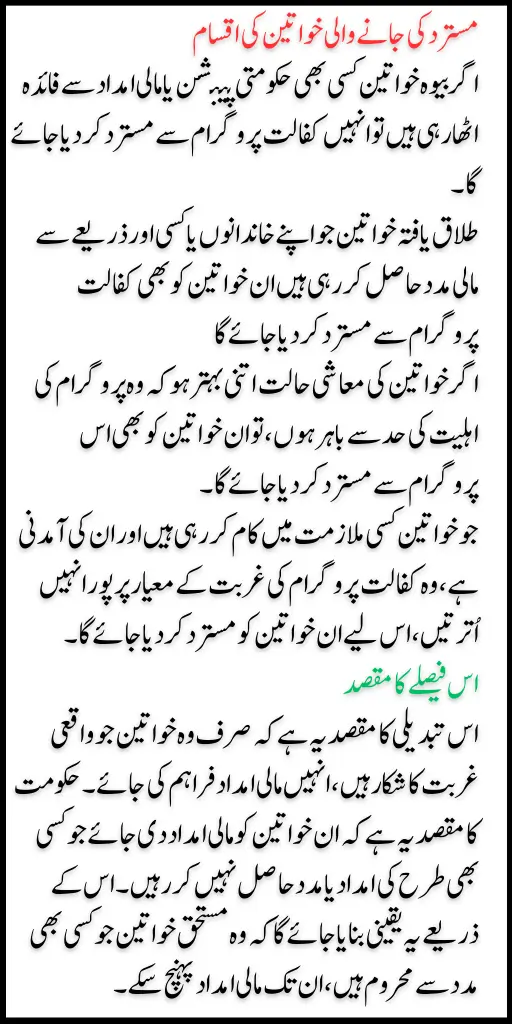 مسترد کی جانے والی خواتین کی اقسام
اگر بیوہ خواتین کسی بھی حکومتی پینشن یا مالی امداد سے فائدہ
اٹھا رہی ہیں تو انہیں کفالت پروگرام سے مسترد کر دیا جائے
گا۔
طلاق یافتہ خواتین جو اپنے خاندانوں یا کسی اور ذریعے سے
مالی مدد حاصل کر رہی ہیں ان خواتین کو بھی کفالت
پروگرام سے مسترد کر دیا جائے گا
اگر خواتین کی معاشی حالت اتنی بہتر ہو کہ وہ پروگرام کی
اہلیت کی حد سے باہر ہوں، تو ان خواتین کو بھی اس
پروگرام سے مسترد کر دیا جائے گا۔
جو خواتین کسی ملازمت میں کام کر رہی ہیں اور ان کی آمدنی
ہے، وہ کفالت پروگرام کی غربت کے معیار پر پورا نہیں
اُترتیں، اس لیے ان خواتین کو مسترد کر دیا جائے گا۔
اس فیصلے کا مقصد
اس تبدیلی کا مقصد یہ ہے کہ صرف وہ خواتین جو واقعی
غربت کا شکار ہیں، انہیں مالی امداد فراہم کی جائے۔ حکومت
کا مقصد یہ ہے کہ ان خواتین کو مالی امداد دی جائے جو کسی
بھی طرح کی امداد یا مدد حاصل نہیں کر رہیں۔ اس کے
ذریعے یہ یقینی بنایا جائے گا کہ وہ مستحق خواتین جو کسی بھی
مدد سے محروم ہیں، ان تک مالی امداد پہنچ سکے۔